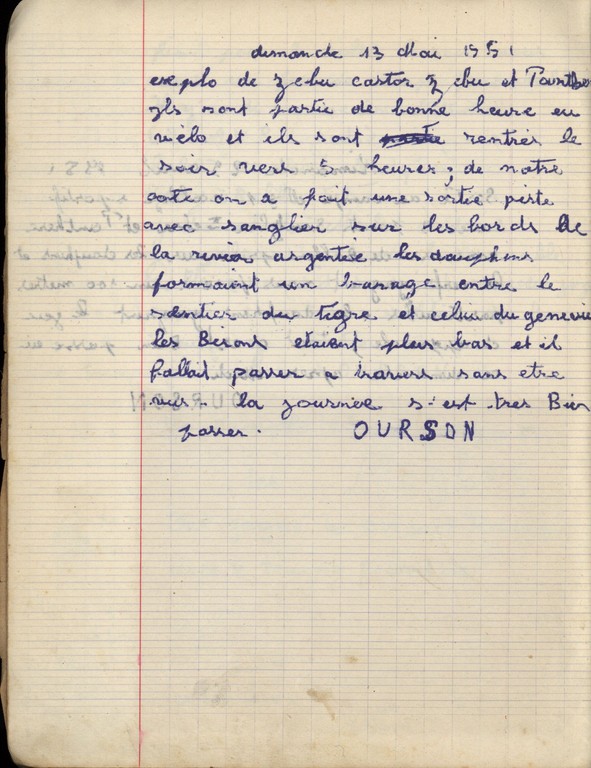 dimanche 13 Mai 1951
explo de zebu castor zebu et Panthère
ils sont partie de bonne heure en
vélo et ils sont partie rentrés le
soir vers 5 heures ; de notre
coté on a fait une sortie piste
avec sanglier sur les bords de
la riviér argentée les dauphins
formaient un barage entre le
sentier du tigre et celui du genevie
les Bisons etaient plus bas et il
fallait passer a travers sans etre
vus. la journee s'est tres Bien
passer. OURSON